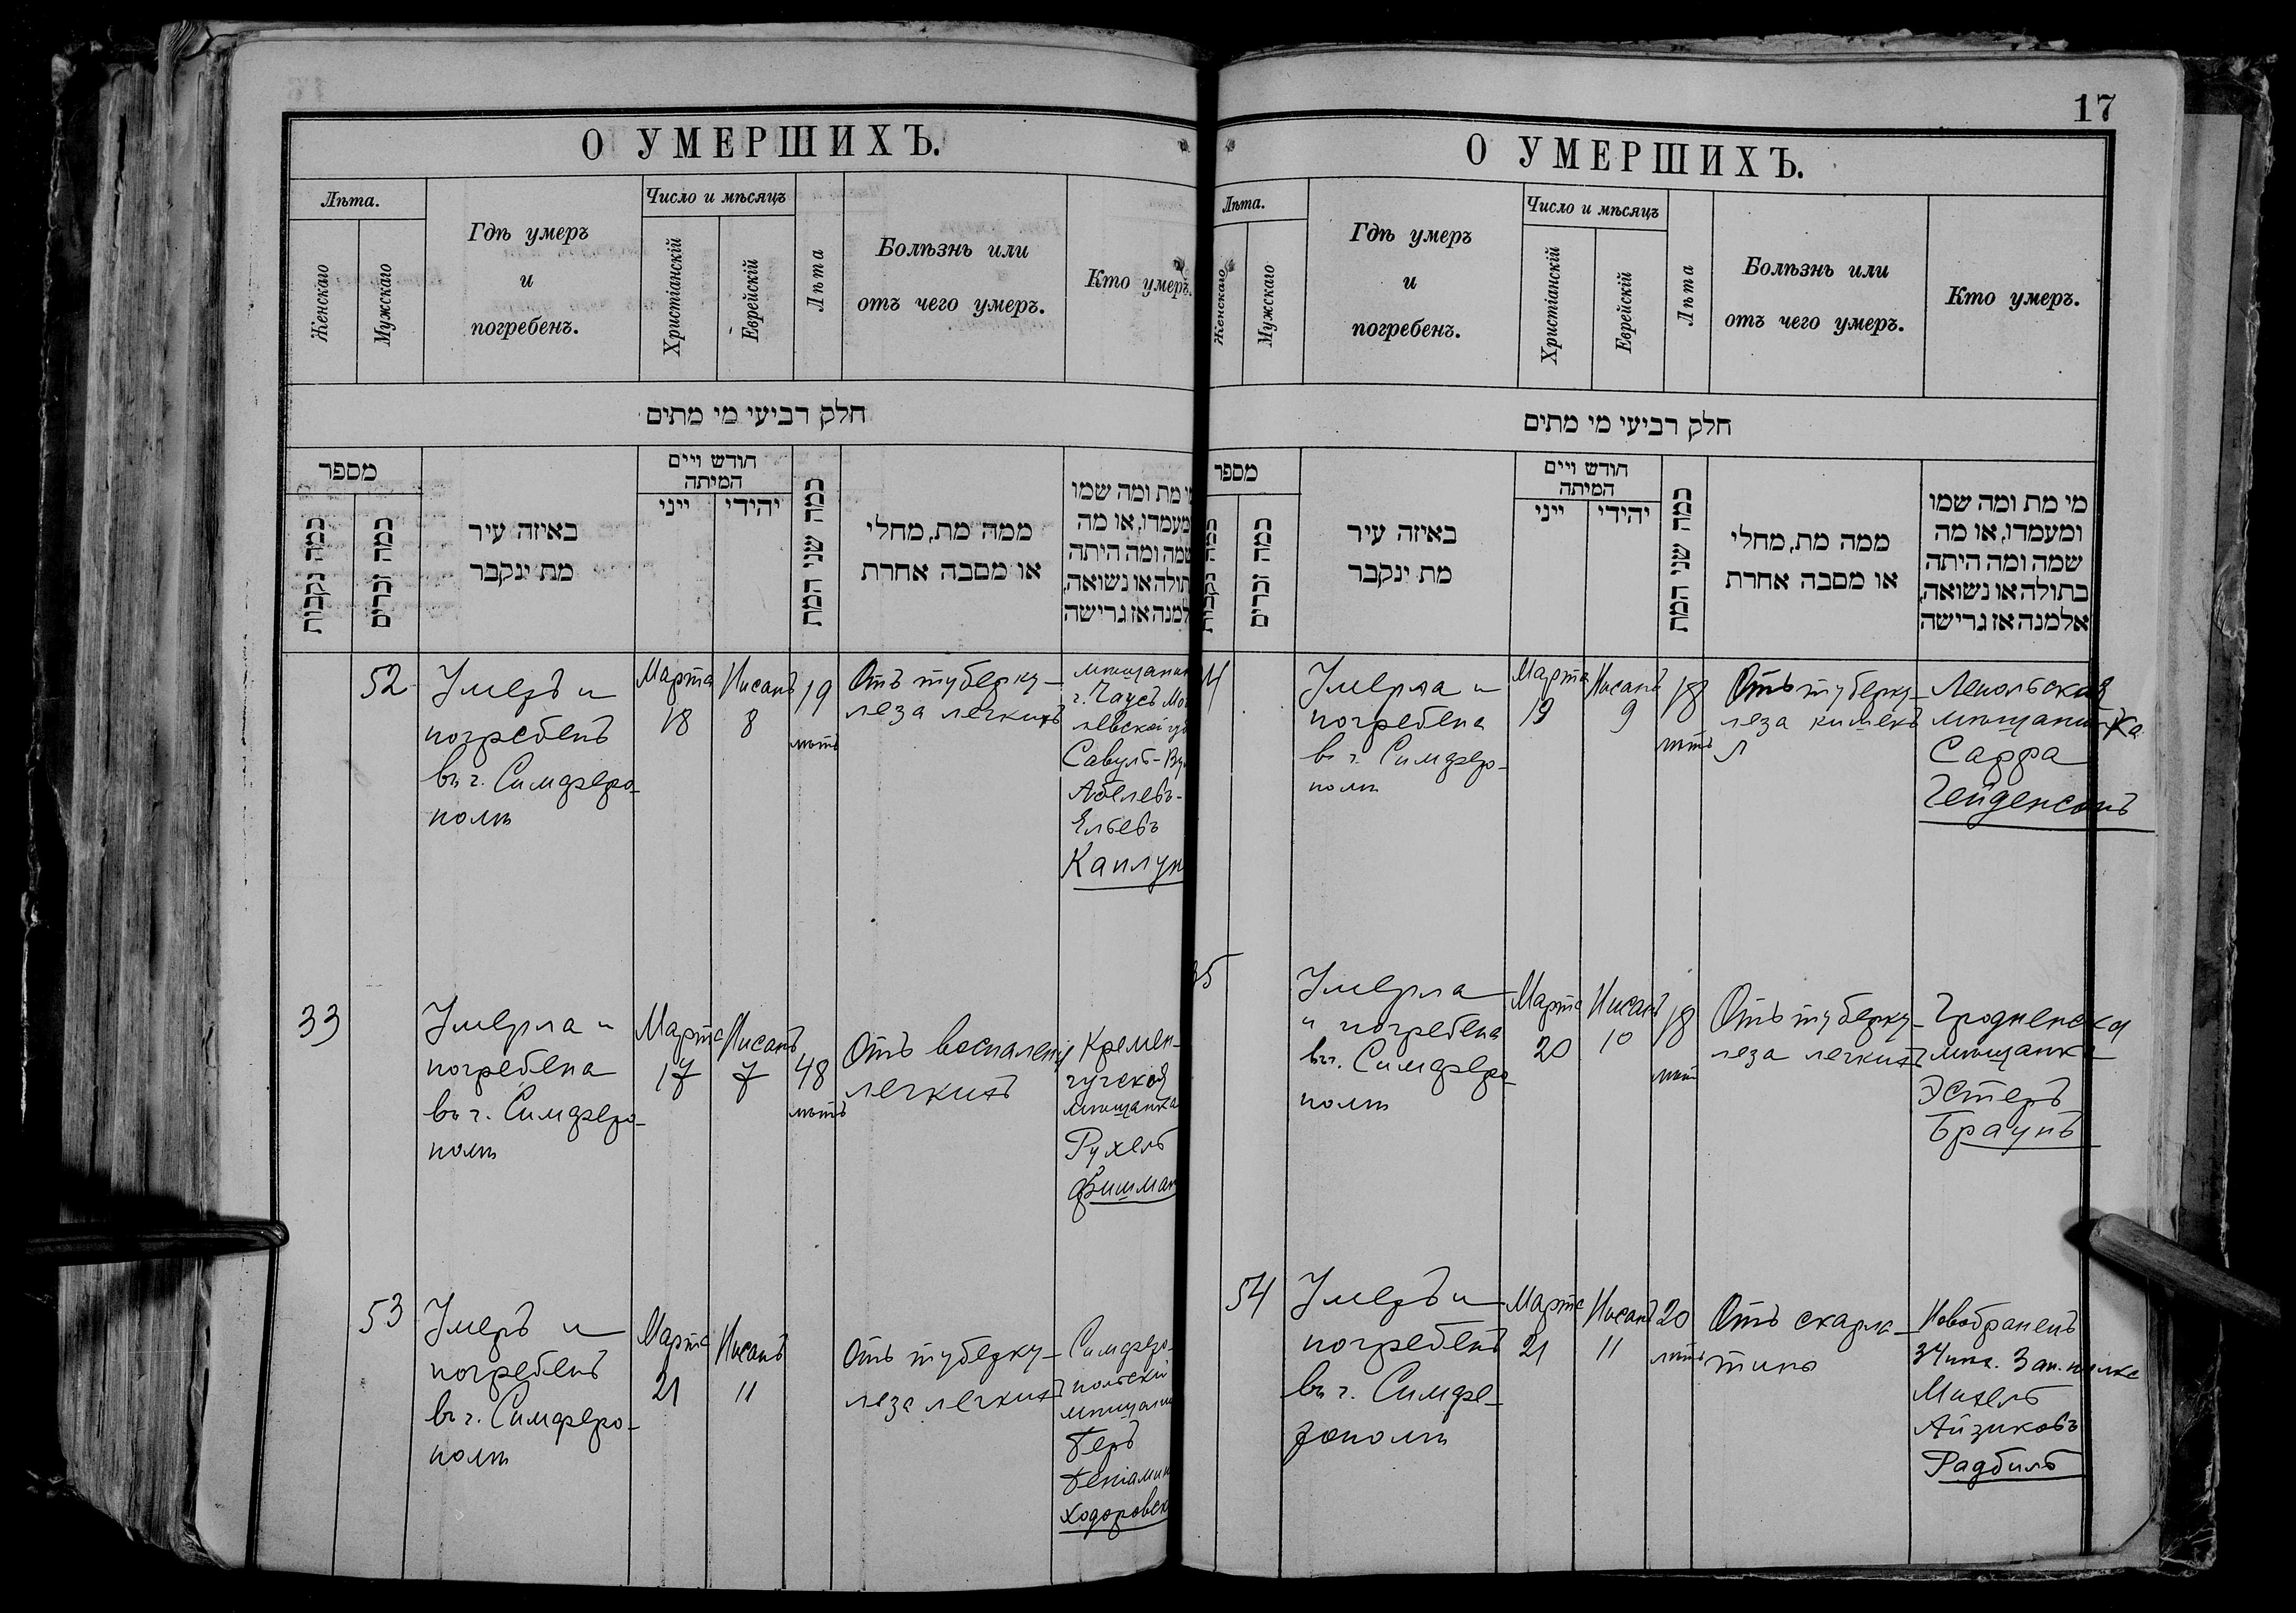 О УМЕРШИХЪ.
Лѣта.
Женскаго
Мужскаго
Гдѣ умеръ
и
погребенъ.
Число и мѣсяцъ
Христіанскій
Еврейскій
Лѣта
Болѣзнь или
отъ чего умеръ.
Кто умеръ.
חלק רביעי מי מתים
מספר
כמה נקבות
כמה זכרים
באיזה עיר
מת ינקבר
חודש ויים
המיתה
ייני
יהידי
כמה שני המת
ממה מת, מחלי
או מסבה אחרת
מי מת ומה שמו
ומעמדו, או מה
שמה ומה היתה
בתולה או נשואה,
אלמנה אז גרישה
52
Умеръ и
погребенъ
въ г. Симферо-
полѣ
Марта
18
Нисанъ
8
19
лѣтъ
Отъ туберку-
леза легкихъ
мѣщанин
г. Чаусъ Мо
левской гу
Савулъ-
Абелевъ-
Ельевъ
Каплун
33
Умерла и
погребена
въ г. Симферо-
полѣ
Марта
17
Нисанъ
7
48
лѣтъ
Отъ воспаленія
легкихъ
Кремен-
чугская
мѣщанка
Рухель
Фишман
53
Умеръ и
погребенъ
въ г. Симферо-
полѣ
Марта
21
Нисанъ
11
Отъ туберку-
леза легкихъ
Симферо-
польскій
мѣщанин
Беръ
Беніамин
Ходоровск
17
О УМЕРШИХЪ.
Лѣта.
Женскаго
Мужскаго
Гдѣ умеръ
и
погребенъ.
Число и мѣсяцъ
Христіанскій
Еврейскій
Лѣта
Болѣзнь или
отъ чего умеръ.
Кто умеръ.
חלק רביעי מי מתים
מספר
כמה נקבות
כמה זכרים
באיזה עיר
מת ינקבר
חודש ויים
המיתה
ייני
יהידי
כמה שני המת
ממה מת, מחלי
או מסבה אחרת
מי מת ומה שמו
ומעמדו, או מה
שמה ומה היתה
בתולה או נשואה,
אלמנה אז גרישה
4
Умерла и
погребена
въ г. Симферо-
полѣ
Марта
19
Нисанъ
9
18
лѣтъ
Отъ туберку-
леза кишекъ
мѣщанинка
Сарра
Гейденсонъ
35
Умерла
и погребена
въ г. Симферо-
полѣ
Марта
20
Нисанъ
10
18
лѣтъ
Отъ туберку-
леза легкихъ
Гродненская
мѣщанка
Эстеръ
Браунъ
54
Умеръ и
погребенъ
въ г. Симфе-
рополѣ
Марта
21
Нисанъ
11
20
лѣтъ
Отъ скарла-
тины
Новобранецъ
34 пѣх. Зап. полка
Михель
Айзиковъ
Радбиль